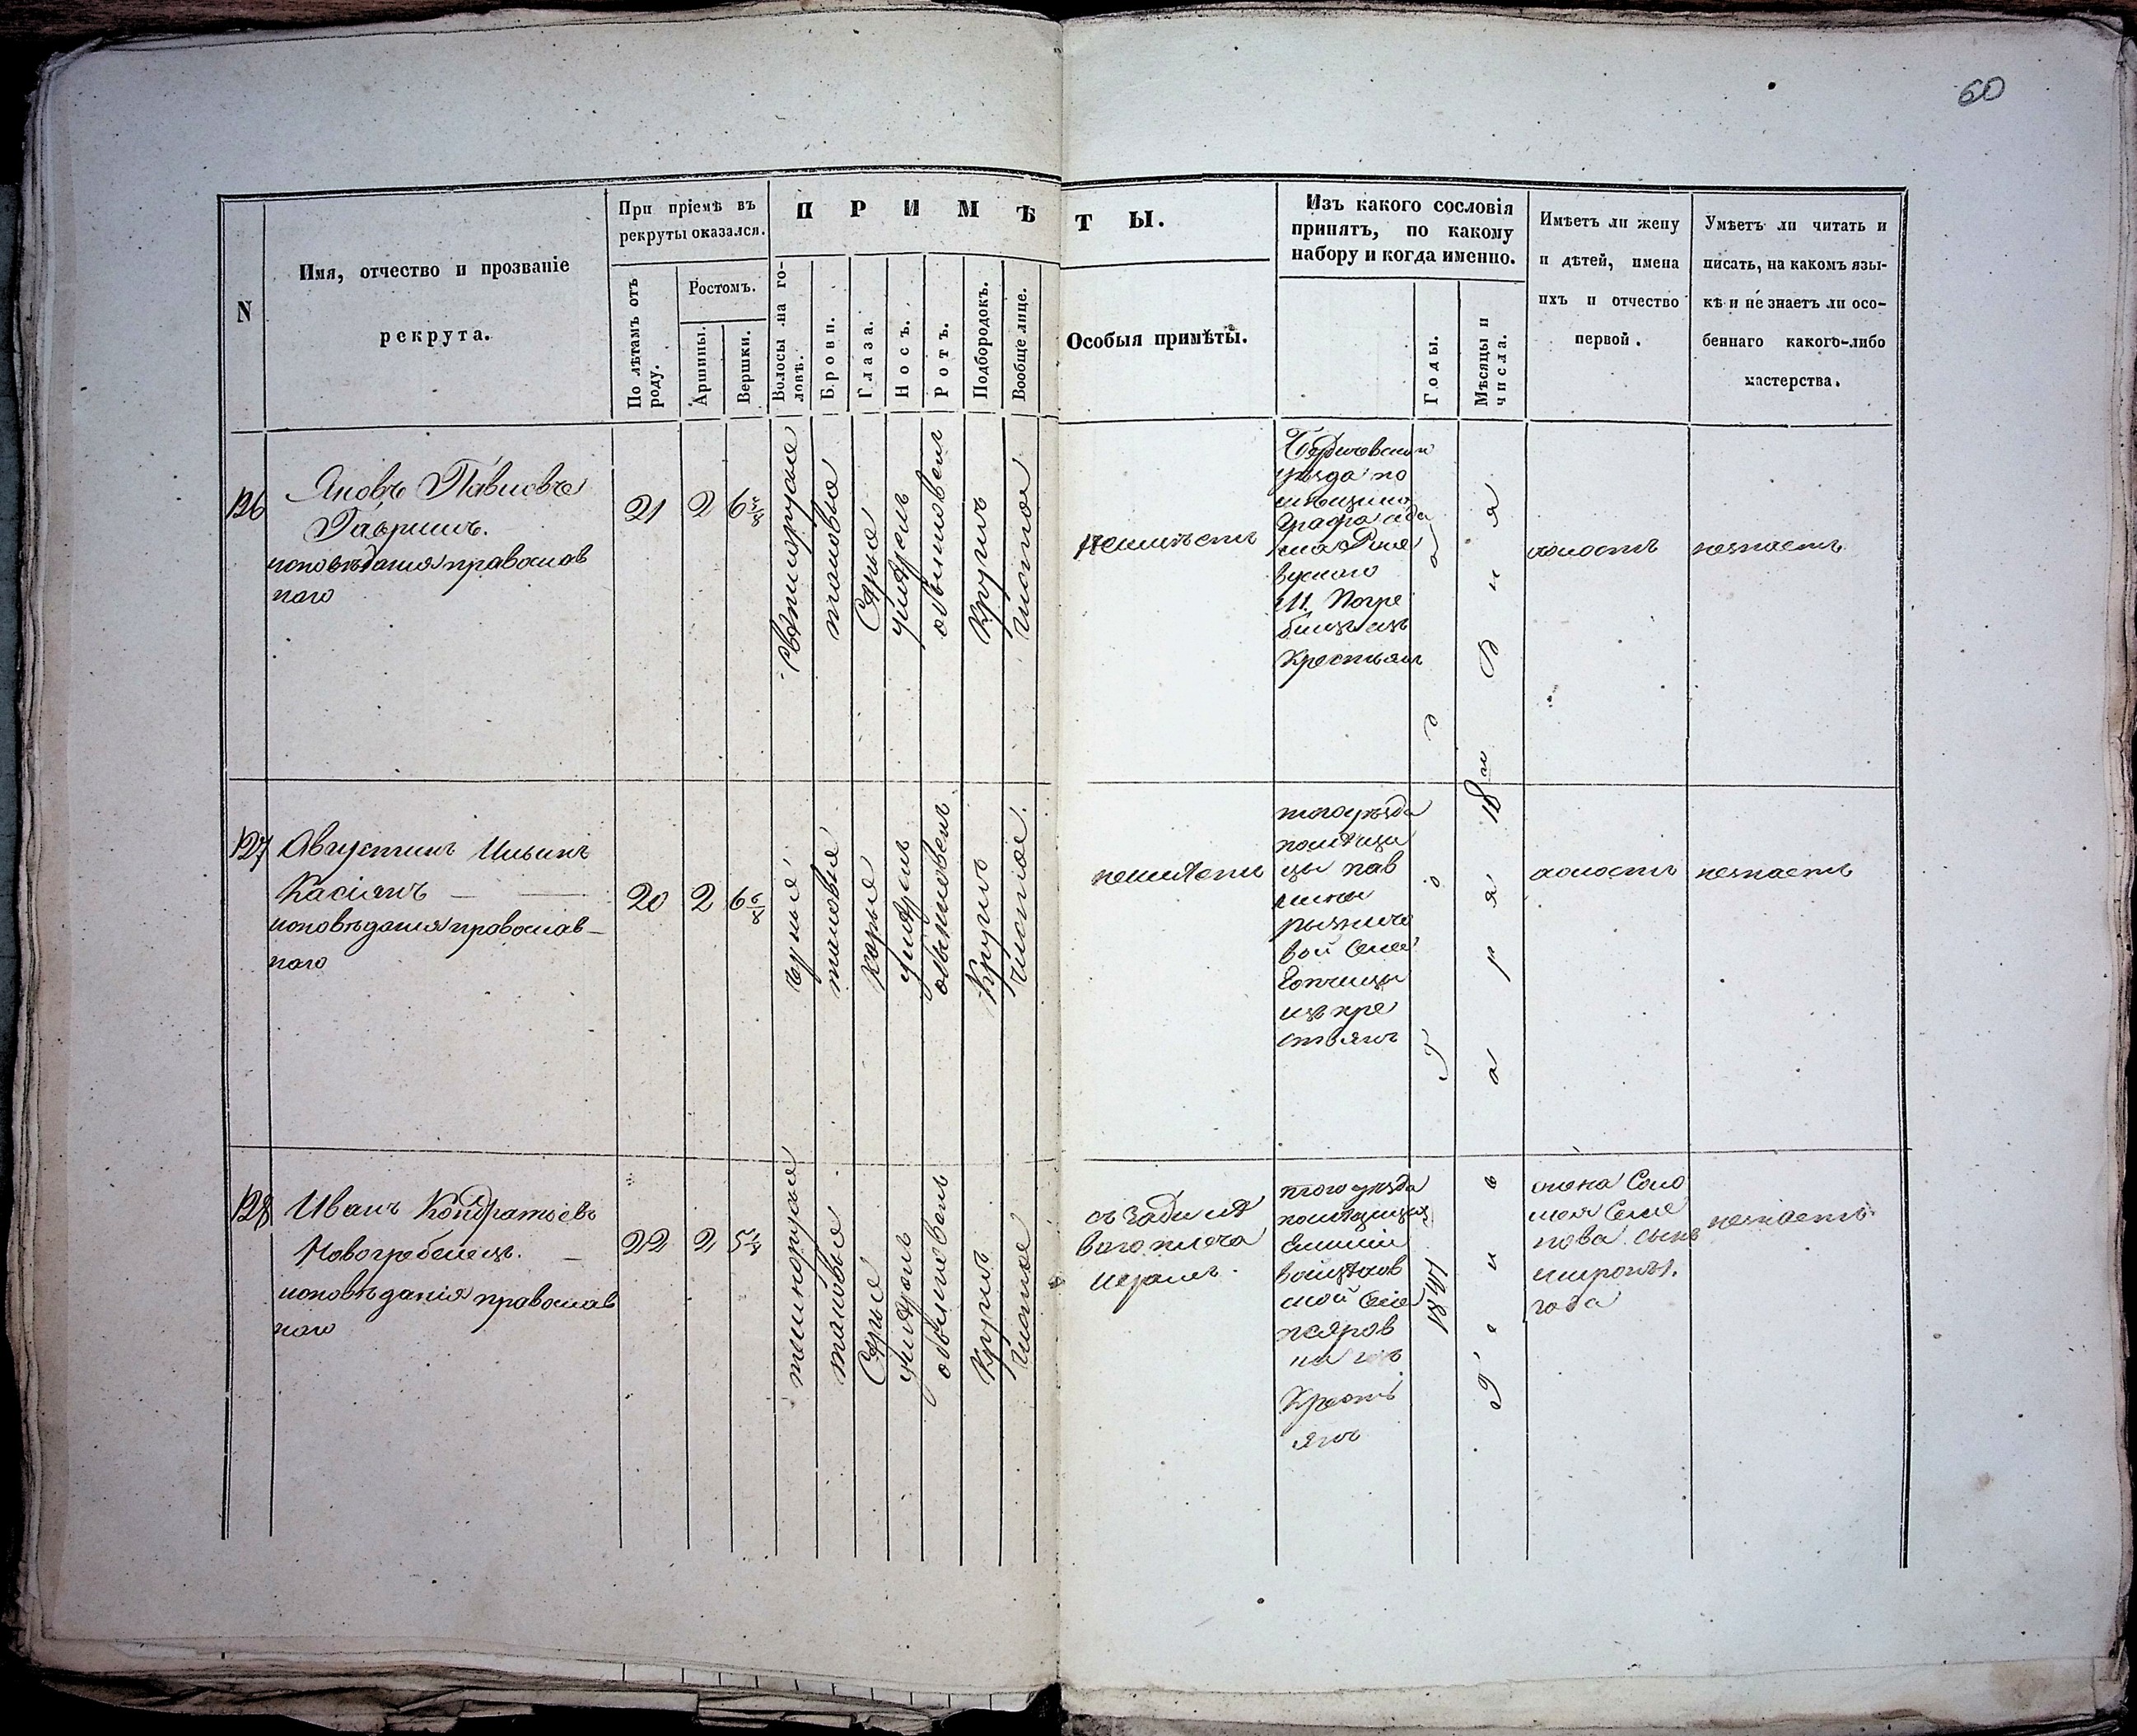 60
N
Имя, отчество и прозваніе
рекрута.
При пріемѣ въ
рекруты оказался.
По лѣтамъ отъ
роду.
Ростомъ.
Аршины.
Вершки.
ПРИМѢТЫ.
Волосы на го-
ловѣ.
Брови.
Глаза.
Носъ.
Ротъ.
Подбородокъ.
Вообще лице.
Особыя примѣты.
Изъ какого сословія
принятъ, по какому
набору и когда именно.
Годы.
Мѣсяцы и
числа.
Имѣетъ ли жену
и дѣтей, имена
ихъ и отчество
первой.
Умѣетъ ли читать и
писать, на какомъ язы-
кѣ и не знаетъ ли осо-
беннаго какого-либо
мастерства.
126
Яковъ Павловъ
Гавришъ.
исповѣданія православ
наго
21
2
6
свѣтлорусые
таковые
Сѣрые
умѣрен
обыкновен
Круглъ
Чистое
неимѣетъ
Бердичевскаго
уѣзда по
мѣщика
Графа Ада
ма Рже
вускаго
М. Погре
бищъ изъ
Крестьянъ
холостъ
незнаетъ
127
Августинъ Ильинъ
Касіянъ —
исповѣданія православ-
наго
20
2
6 6/8
русые
таковые
карые
умѣрен
обыкновенъ
Круглъ
Чистое.
неимѣетъ
того уѣзда
помѣщи
цы Пав
лины
вой Села
изъ кре
стьянъ
холостъ
незнаетъ
128
Иванъ Кондратьевъ
Новогребелецъ. —
исповѣданія православ
наго
22
2
5
темнорусые
таковые
Сѣрые
умѣрен
обыкновенъ
Круглъ
Чистое
съ зади лѣ
ваго плеча
шрамъ.
того уѣзда
помѣщицы
Емиліи
ской Села
изъ
Кресть
янъ
1847 Года
Генваря 18го дня
жена Соло
мея Семе
нова сынъ
Миронъ 1.
года
незнаетъ